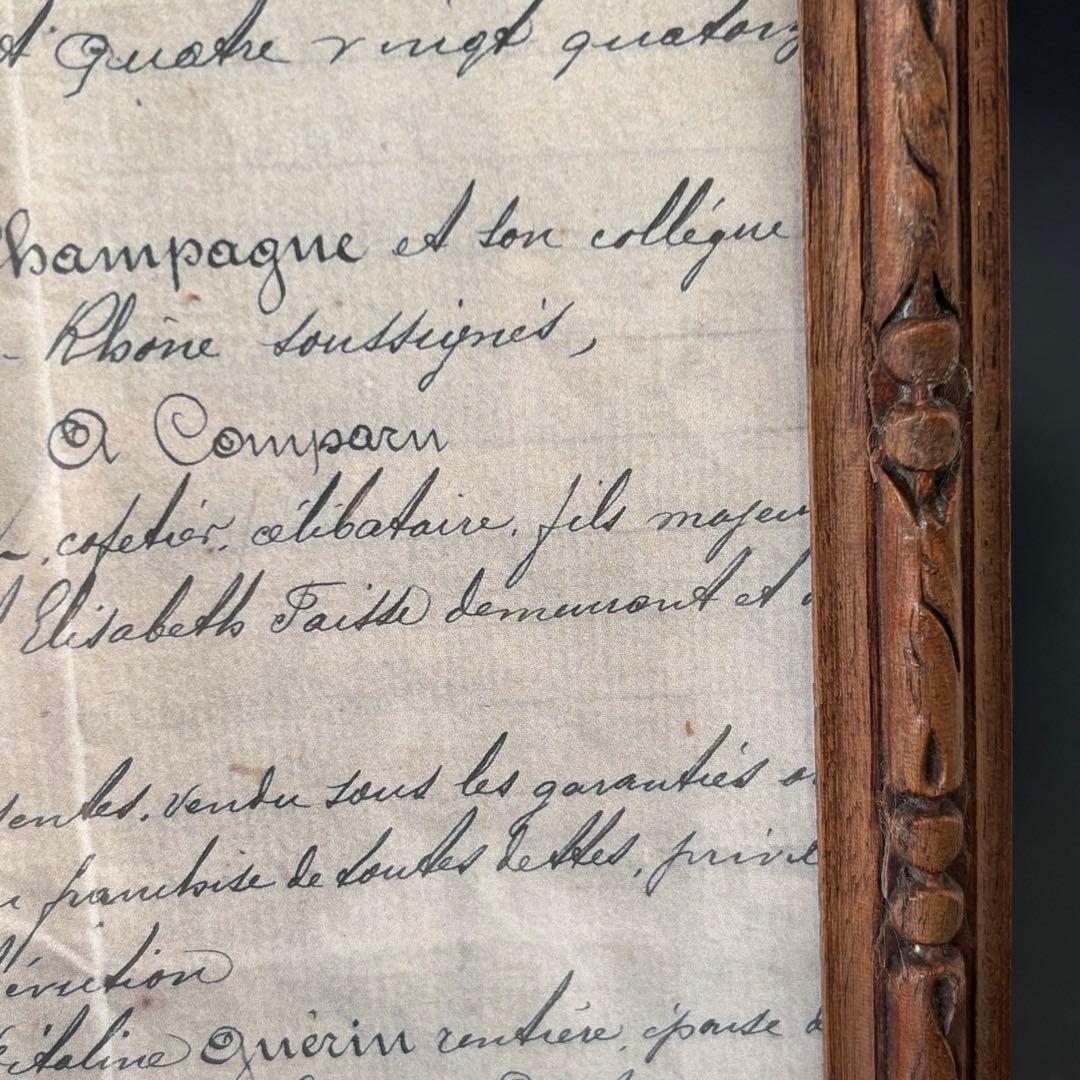 Quatre vingt quatorz
Champagne et son collégue
Rhône soussignés,
A Comparu
cafetier, célibataire, fils majeur
Elisabeth Faisse demeurant et
sentes. vendu sous les garanties
franchise de toutes dettes, privil
d'éviction
Vitaline Guérin rentière, épouse d